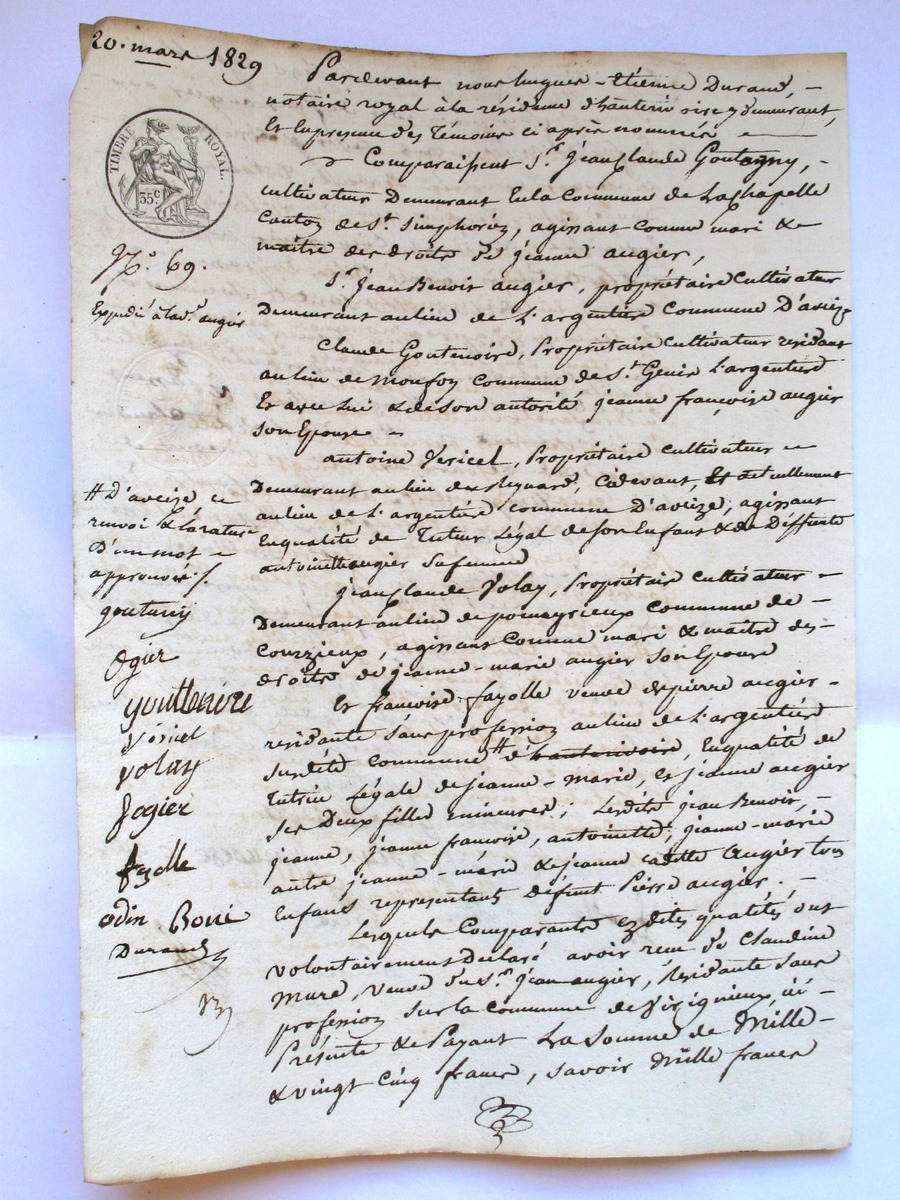 20. mars 1829
TIMBRE ROYAL.
35c
No. 69.
Expédié à la ve. augier
Pardevant nous hugues-Etienne Durand,
notaire royal à la résidence d'hauterivoire y demeurant,
Et En presence des Témoins ci après nommés
Comparaissent Sr. Jean Claude Goutagny,
cultivateur Demeurant En la Commune de La Chapelle
Canton de St. Simphorien, agissant Comme mari &
maître des droits de jeanne augier,
Sr. Jean Benoit augier, propriétaire Cultivateur
Demeurant au lieu de L'argentière Commune D'aveize
Claude Goutenoire, Propriétaire Cultivateur résidant
au lieu de Monfon Commune de St. Genis L'argentière
Et avec Lui & de son autorité jeanne françoise augier
son Epouse
antoine Vericel, Propriétaire Cultivateur
Demeurant au lieu des, Cidevant, Et actuellement
au lieu de L'argentière commune D'aveize, agissant
En qualité de Tuteur Légal de son Enfant & de Deffunte
antoinette augier sa femme
jean Claude Volay, Propriétaire Cultivateur
Demeurant au lieu de pomeyrieux Commune de
Courzieux, agissant Comme mari & maître des
droits de jeanne-marie augier son Epouse
Et françoise fayolle veuve de pierre augier
residante sans profession au lieu de L'argentière
susdite commune # d'hauterivoire, En qualité de
Tutrice Légale de jeanne-marie, et jeanne augier
ses Deux filles mineures; Lesdits jean Benoit,
jeanne, jeanne françoise, antoinette, jeanne-marie
autre jeanne-marie & jeanne cadette augier tous
Enfants représentants défunt Pierre augier.
Lesquels Comparants Ezdites qualités ont
volontairement Déclaré avoir reçu de Claudine
Mure, veuve du sr. jean augier, Résidante sans
profession sur la commune de Virigneux, ici
Présente & Payant La somme de Mille
& vingt Cinq francs, savoir Mille francs
# D'aveize ce
renvoi & la rature
D'un mot
approuvés
goutagny
Ogier
gouttenoire
Véricel
volay
Jogier
fayolle
odin Boni
Durand